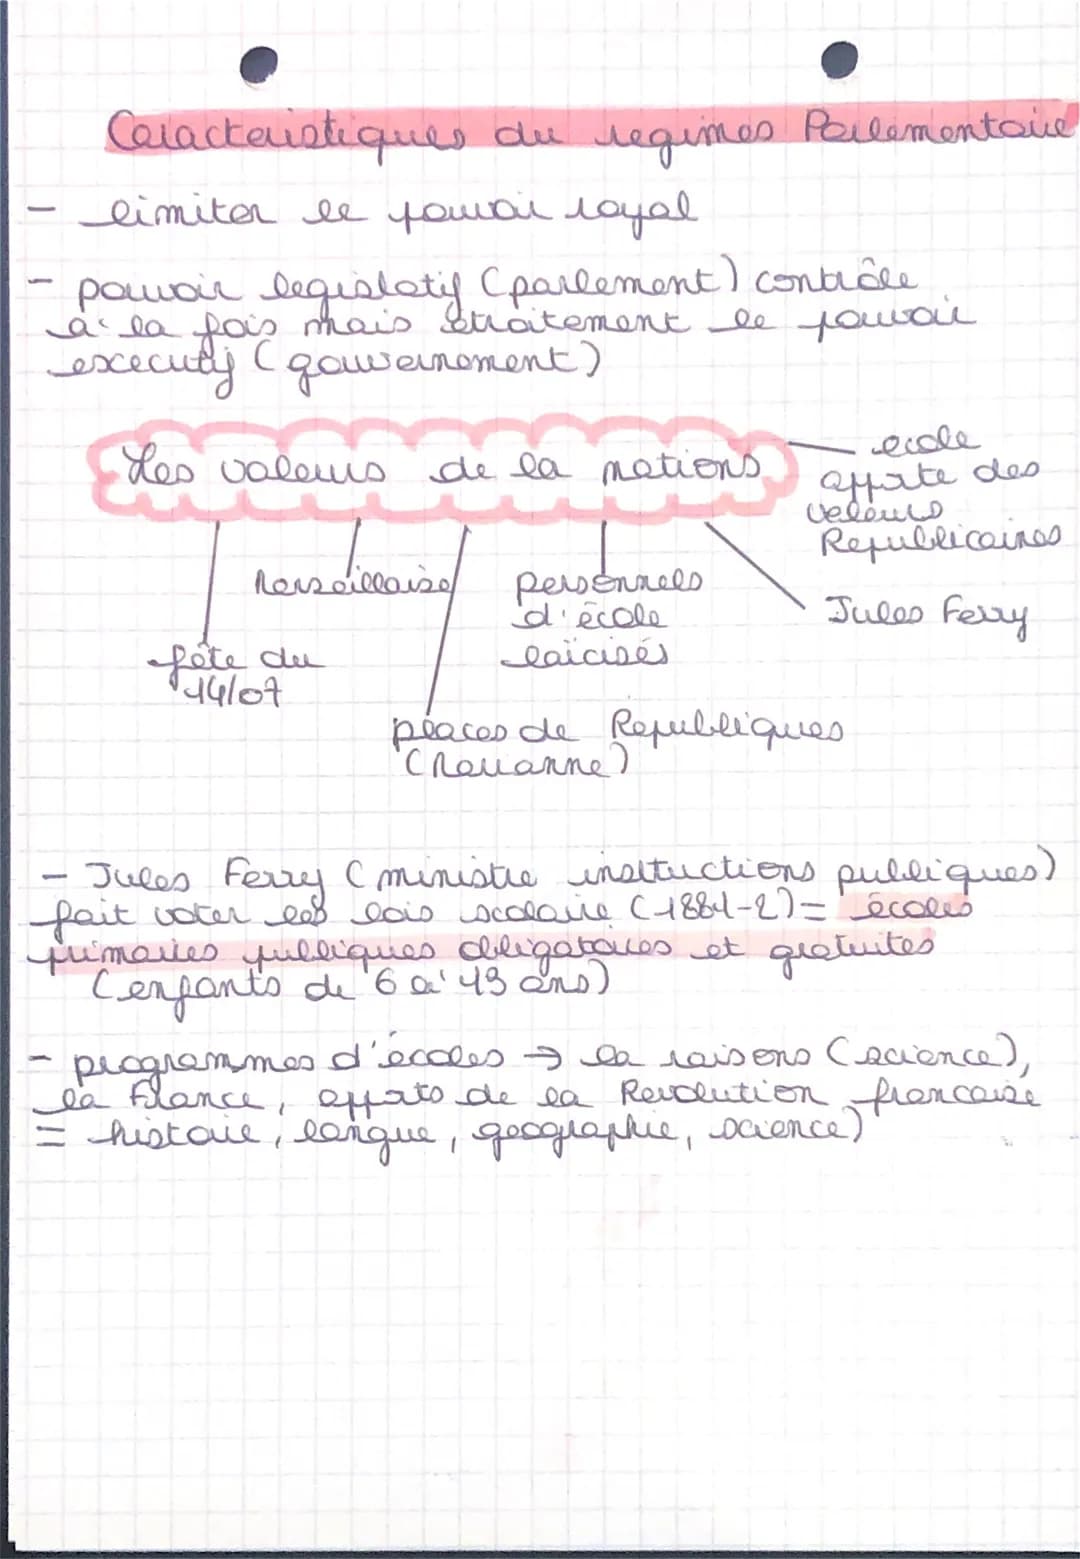 Caracteristiques du regimes Parlementaire
- limiter le pouvoir royal
- pouvoir legislatif (parlement) contrôle
à la fois mais étroitement le pouvoir
executif (gouvernement)
Les valeurs de la nations
école
apporte des
valeurs
Republicaines
Marseillaise
personnels
d'école
laïcisés
Jules Ferry
fête du
14/07
places de Republiques
(Marianne)
- Jules Ferry (ministre instructions publiques)
fait voter les lois scolaire (1881-2) = écoles
primaires publiques obligatoires et gratuites
(enfants de 6 à 13 ans)
- programmes d'écoles → la raisons (science),
la France, apports de la Revolution francaise
= histoire, langue, geographie, science)